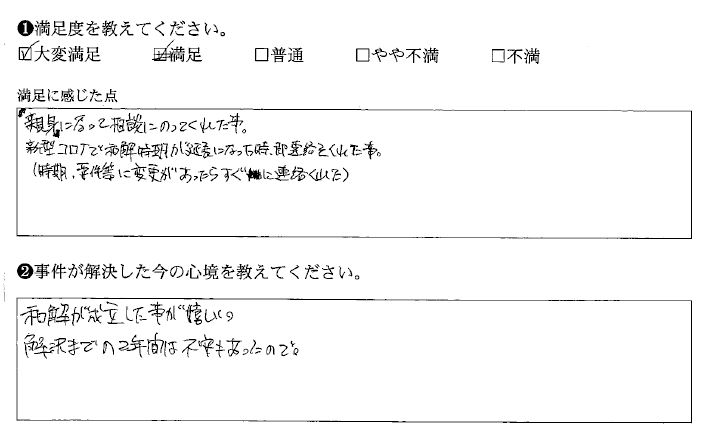 ❶満足度を教えてください。
☑大変満足 ☑満足 □普通 □やや不満 □不満
満足に感じた点
親身になって相談にのってくれた事。
新型コロナで和解時期が延長になった時、即連絡をくれた事。
(時期、要件等に変更があったらすぐに連絡くれた)
❷事件が解決した今の心境を教えてください。
和解が成立した事が嬉しい。
解決までの2年間は不安もあったので。